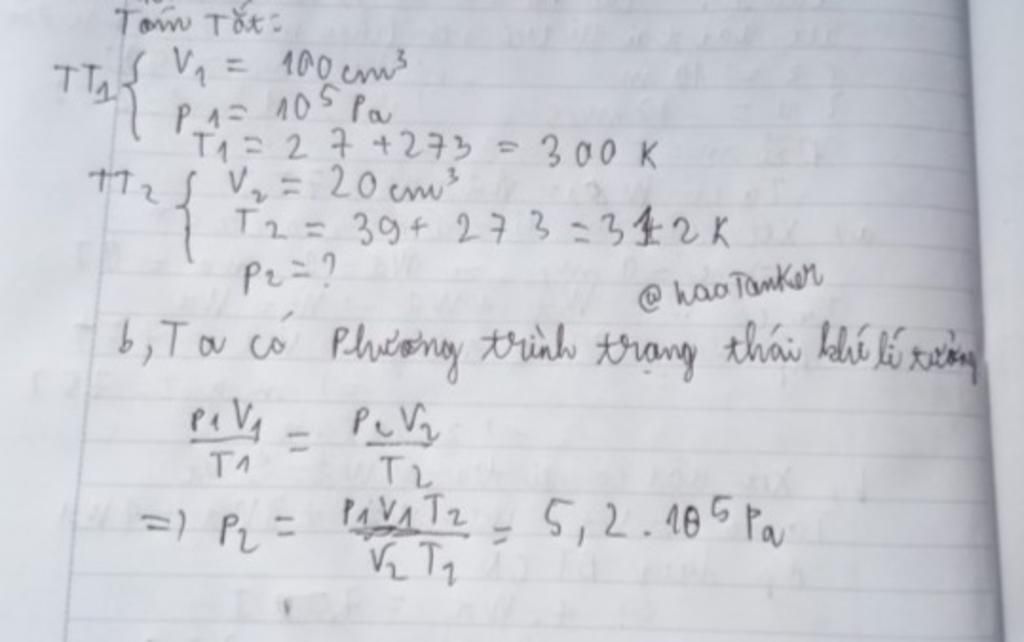 Tóm Tắt:
TT1 { V1 = 100 cm³
p1 = 10⁵ Pa
T1 = 27 + 273 = 300 K
TT2 { V2 = 20 cm³
T2 = 39 + 273 = 312 K
p2 = ?
@haoTanker
b, Ta có Phương trình trạng thái khí lí tưởng
p1V1/T1 = p2V2/T2
=> p2 = p1V1T2/V2T1 = 5,2.10⁵ Pa